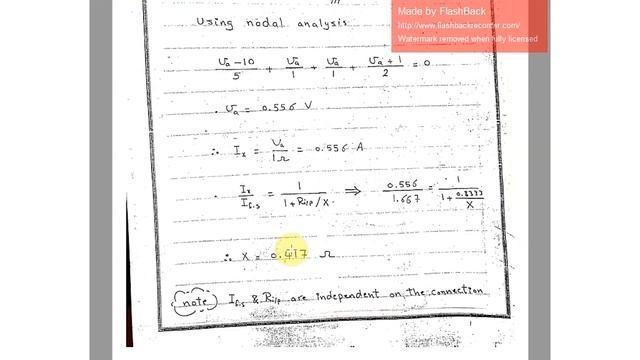 Made by FlashBack
http://www.flashbackrecorder.com/
Watermark removed when fully licensed
Using nodal analysis
(Va − 10)/5 + Va/1 + Va/1 + (Va + 1)/2 = 0
. Va = 0.556 V
∴ Ix = Va/1Ω = 0.556 A
. Ix/If.s = 1/(1 + Ri/p/X) ⟹ 0.556/1.667 = 1/(1 + 0.8333/X)
∴ X = 0.417 Ω
note) If.s & Ri/p are independent on the connection